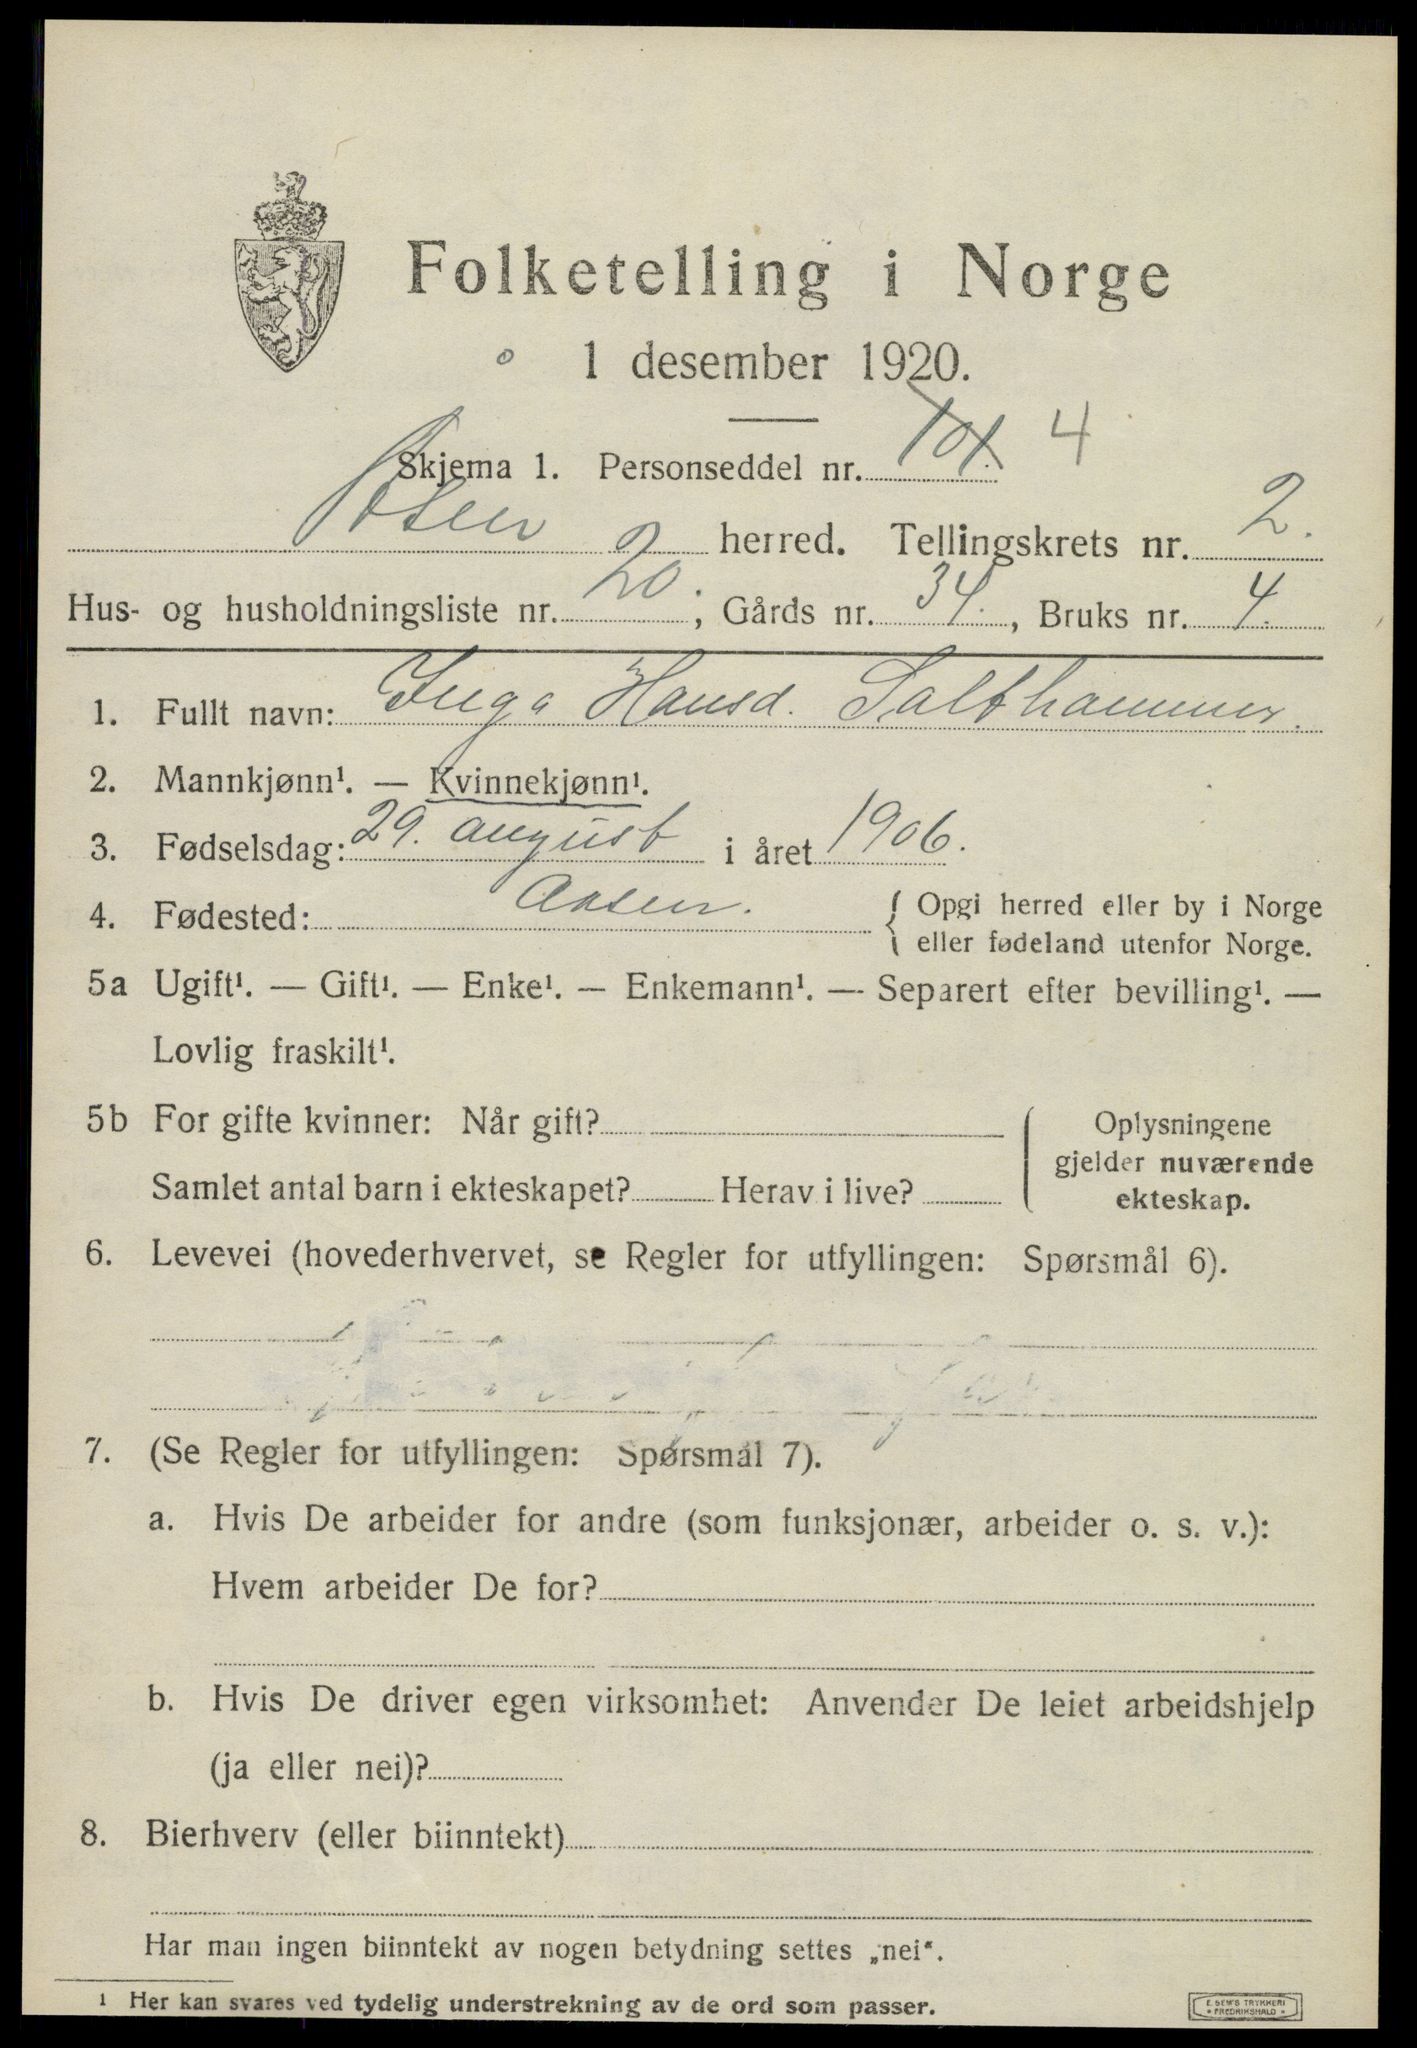 Folketelling i Norge
1 desember 1920.
Skjema 1. Personseddel nr. 101. 4
Åsen herred. Tellingskrets nr. 2.
Hus- og husholdningsliste nr. 20. ; Gårds nr. 34. , Bruks nr. 4.
1. Fullt navn: Inga Hansd. Salthammer.
2. Mannkjønn¹. — Kvinnekjønn¹.
3. Fødselsdag: 29. august i året 1906.
4. Fødested: Aasen. { Opgi herred eller by i Norge
eller fødeland utenfor Norge.
5a Ugift¹. — Gift¹. — Enke¹. — Enkemann¹. — Separert efter bevilling¹. —
Lovlig fraskilt¹.
5b For gifte kvinner: Når gift?
Samlet antal barn i ekteskapet? Herav i live?
{ Oplysningene
gjelder nuværende
ekteskap.
6. Levevei (hovederhvervet, se Regler for utfyllingen: Spørsmål 6).
7. (Se Regler for utfyllingen: Spørsmål 7).
a. Hvis De arbeider for andre (som funksjonær, arbeider o. s. v.):
Hvem arbeider De for?
b. Hvis De driver egen virksomhet: Anvender De leiet arbeidshjelp
(ja eller nei)?
8. Bierhverv (eller biinntekt)
Har man ingen biinntekt av nogen betydning settes „nei“.
1 Her kan svares ved tydelig understrekning av de ord som passer.
E. SEM'S TRYKKERI
* FREDRIKSHALD *